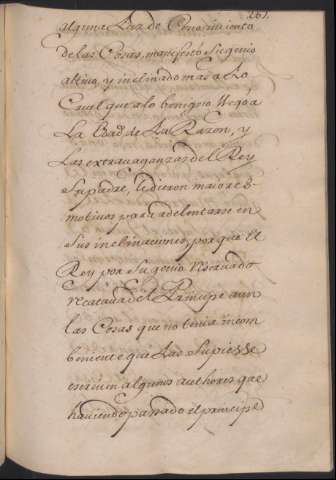 261.
alguna Luz de Conocimiento
de las Cosas, manifestó Su genio
altivo, y inclinado mas a Lo
Cruel que a lo benigno Llegó a
La Edad de La Razon, y
Las extravaganzas del Rey
Su padre, le dieron maiores
motivos para adelantarse en
Sus inclinaciones porque El
Rey por Su genio reservado
recataua del Principe aun
las Cosas que no tenia incom
beniente que Las Supiesse
escriuen algunos authores que
haviendo passado el principe